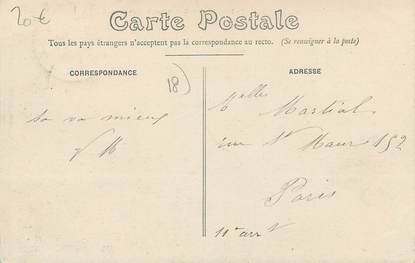 20€
Carte Postale
Tous les pays étrangers n'acceptent pas la correspondance au recto. (Se renseigner à la poste)
CORRESPONDANCE
18
ADRESSE
sa va mieux
Melle Martial
rue St Maur 152
Paris
10e arrt